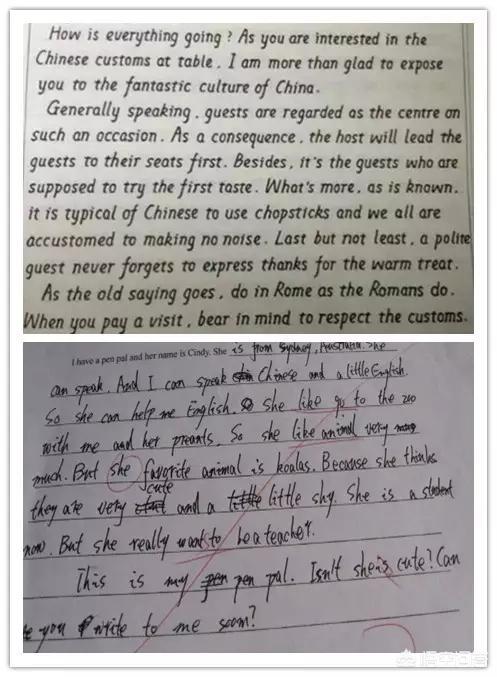 How is everything going? As you are interested in the
Chinese customs at table, I am more than glad to expose
you to the fantastic culture of China.
Generally speaking, guests are regarded as the centre on
such an occasion. As a consequence, the host will lead the
guests to their seats first. Besides, it's the guests who are
supposed to try the first taste. What's more, as is known,
it is typical of Chinese to use chopsticks and we all are
accustomed to making no noise. Last but not least, a polite
guest never forgets to express thanks for the warm treat.
As the old saying goes, do in Rome as the Romans do.
When you pay a visit, bear in mind to respect the customs.
I have a pen pal and her name is Cindy. She is from Sydney, Australia. She
can speak. And I can speak Chinese and a little English.
So she can help me English. She like go to the zoo
with me and her preants. So she like animal very
much. But she favorite animal is koalas. Because she thinks
they are very cute and a little shy. She is a student
now. But she really want to be a teacher.
This is my pen pal. Isn't she is cute? Can
you write to me soom?
悟空问答